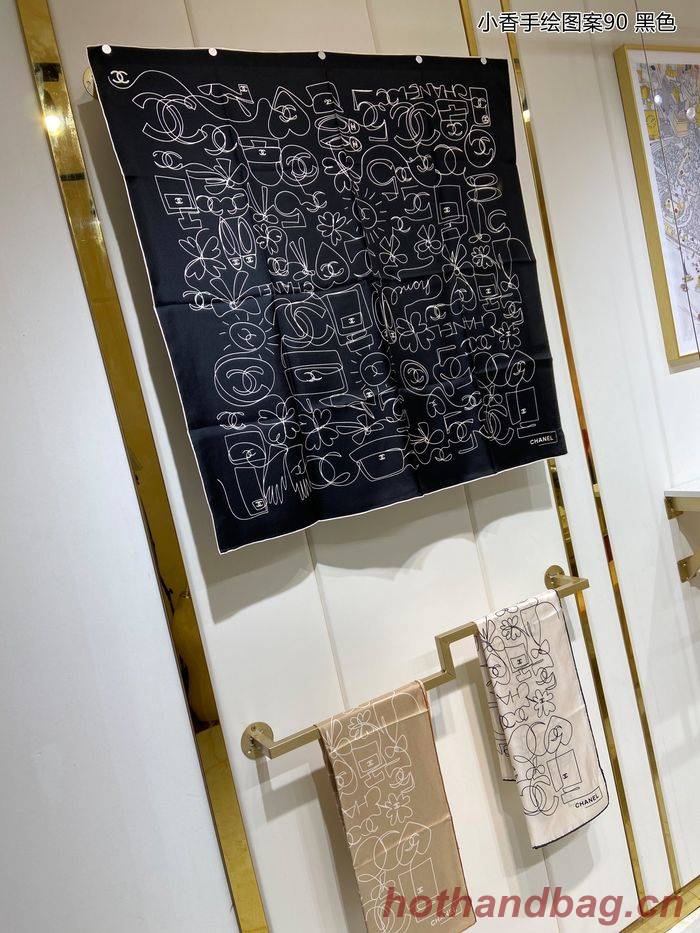 小香手绘图案90 黑色
CHANEL
Chanel
CHANEL
CHANEL
hothandbag.cn